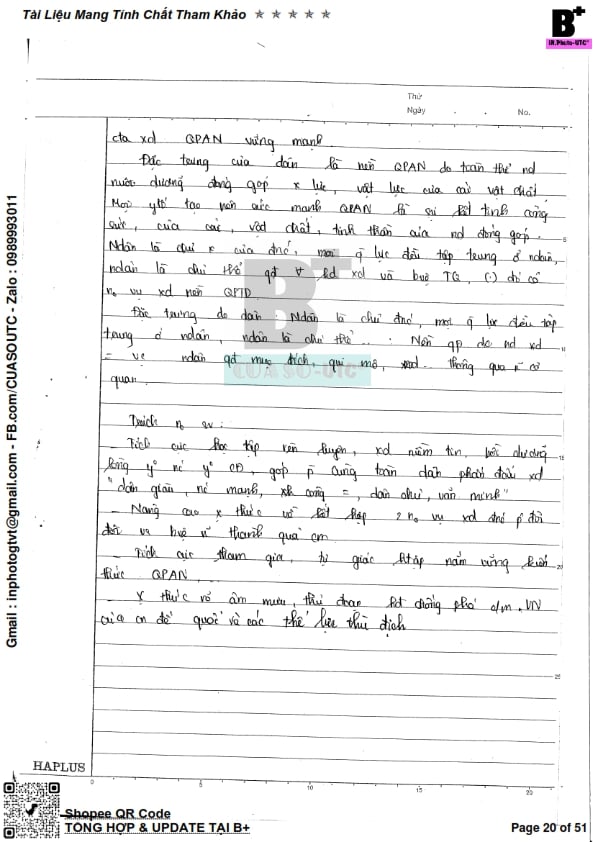 Tài Liệu Mang Tính Chất Tham Khảo ★ ★ ★ ★ ★
B+
IN.Photo-UTC
Thứ
Ngày . . No.
cta xd QPAN vững mạnh
Đặc trưng của dân là nền QPAN do toàn thể nd
nước dương đóng góp lực, vật lực của cải vật chất.
Mọi ytố tạo nên sức mạnh QPAN là sự kết tinh công
sức, của cải, vật chất, tinh thần của nd đóng góp.
Ndân là chủ của đnc, mọi q lực đều tập trung ở ndân,
ndân là chủ thể qđ ∀ hđ xd và bvệ TQ, (.) đó có
n. vụ xd nền QPTD
Đặc trưng do dân Ndân là chủ đnc, mọi q lực đều tập
trung ở ndân, ndân là chủ thể... Nền qp do nd xd
ndân qđ mục đích, qui mô, thông qua cơ
quan.
B+
CUA SO-UTC
Trách n. sv:
– Tích cực học tập rèn luyện, xd niềm tin, bồi dưỡng
lòng yº nc yº góp p cùng toàn dân phấn đấu xd
"dân giàu, nc mạnh, xh công =, dân chủ, văn minh"
– Nâng cao ý thức về kết hợp 2 n. vụ xd đnc p đôi
và bvệ thành quả cm
– Tích cực tham gia, tự giác htập nắm vững kiến
thức QPAN
– Ý thức rõ âm mưu, thủ đoạn hđ chống phá c/m VN
của cn đế quốc và các thế lực thù địch
5
15
20
25
HAPLUS
0 5 10 15 20
Gmail : inphotogtvt@gmail.com - FB.com/CUASOUTC - Zalo : 0989993011
Shopee QR Code
TỔNG HỢP & UPDATE TẠI B+
Page 20 of 51